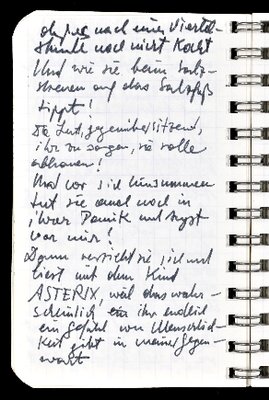 daß es nach einer Viertel-
stunde noch nicht kocht
Und wie sie beim Salz-
streuen auf das Salzfaß
tippt!
Die Lust, gegenübersitzend,
ihr zu sagen, sie solle
abhauen!
Und vor sich hinsummen
tut sie auch noch in
ihrer Panik und Angst
vor mir!
Dann verzieht sie sich und
liest mit dem Kind
ASTERIX, weil das wahr-
scheinlich ihr endlich
ein Gefühl von Menschlich-
keit gibt in meiner Gegen-
wart